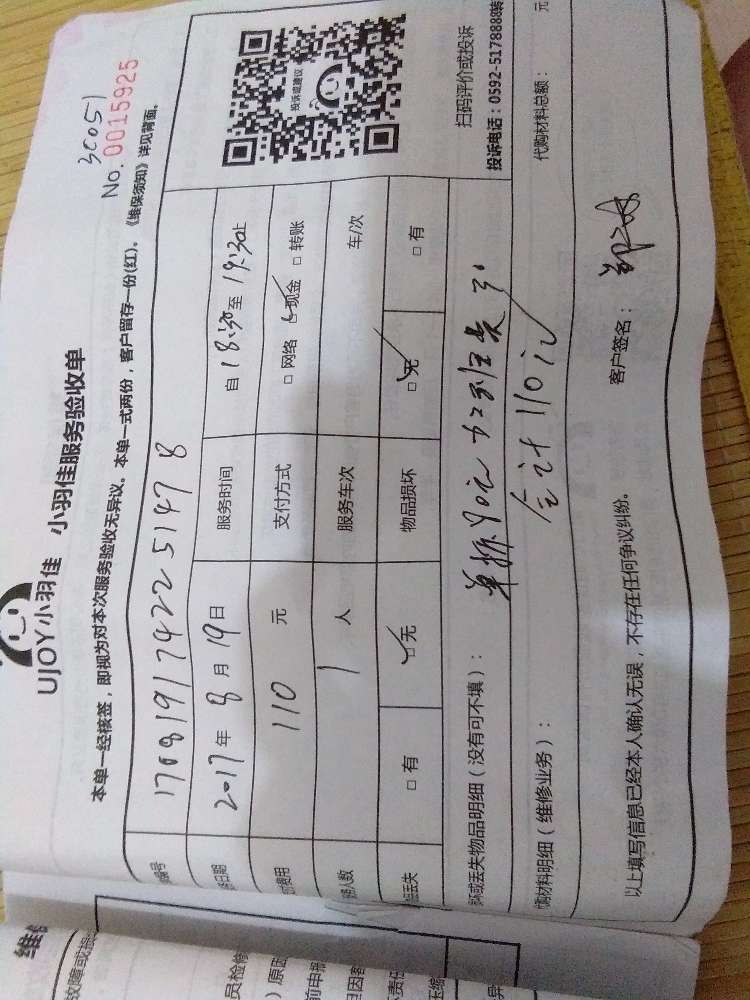 3C051
No. 0015925
UJOY小羽佳 小羽佳服务验收单
本单一经核签，即视为对本次服务验收无异议。本单一式两份，客户留存一份(红)。《维保须知》详见背面。
编号 170819174225 51478
日期 2017年8月19日 服务时间 自18:30至19:30止
费用 110 元 支付方式 □网络 ☑现金 □转账
人数 1 人 服务车次 车/次
丢失 □有 ☑无 物品损坏 ☑无 □有
投诉或建议
扫码评价或投诉
投诉电话：0592-5178888转
或丢失物品明细（没有可不填）： 单拆90元
合计110元
购材料明细（维修业务）： 代购材料总额： 元
以上填写信息已经本人确认无误，不存在任何争议纠纷。 客户签名：
维修
故障或损
员检修
）原因
前申报
但因客
责任
压缩